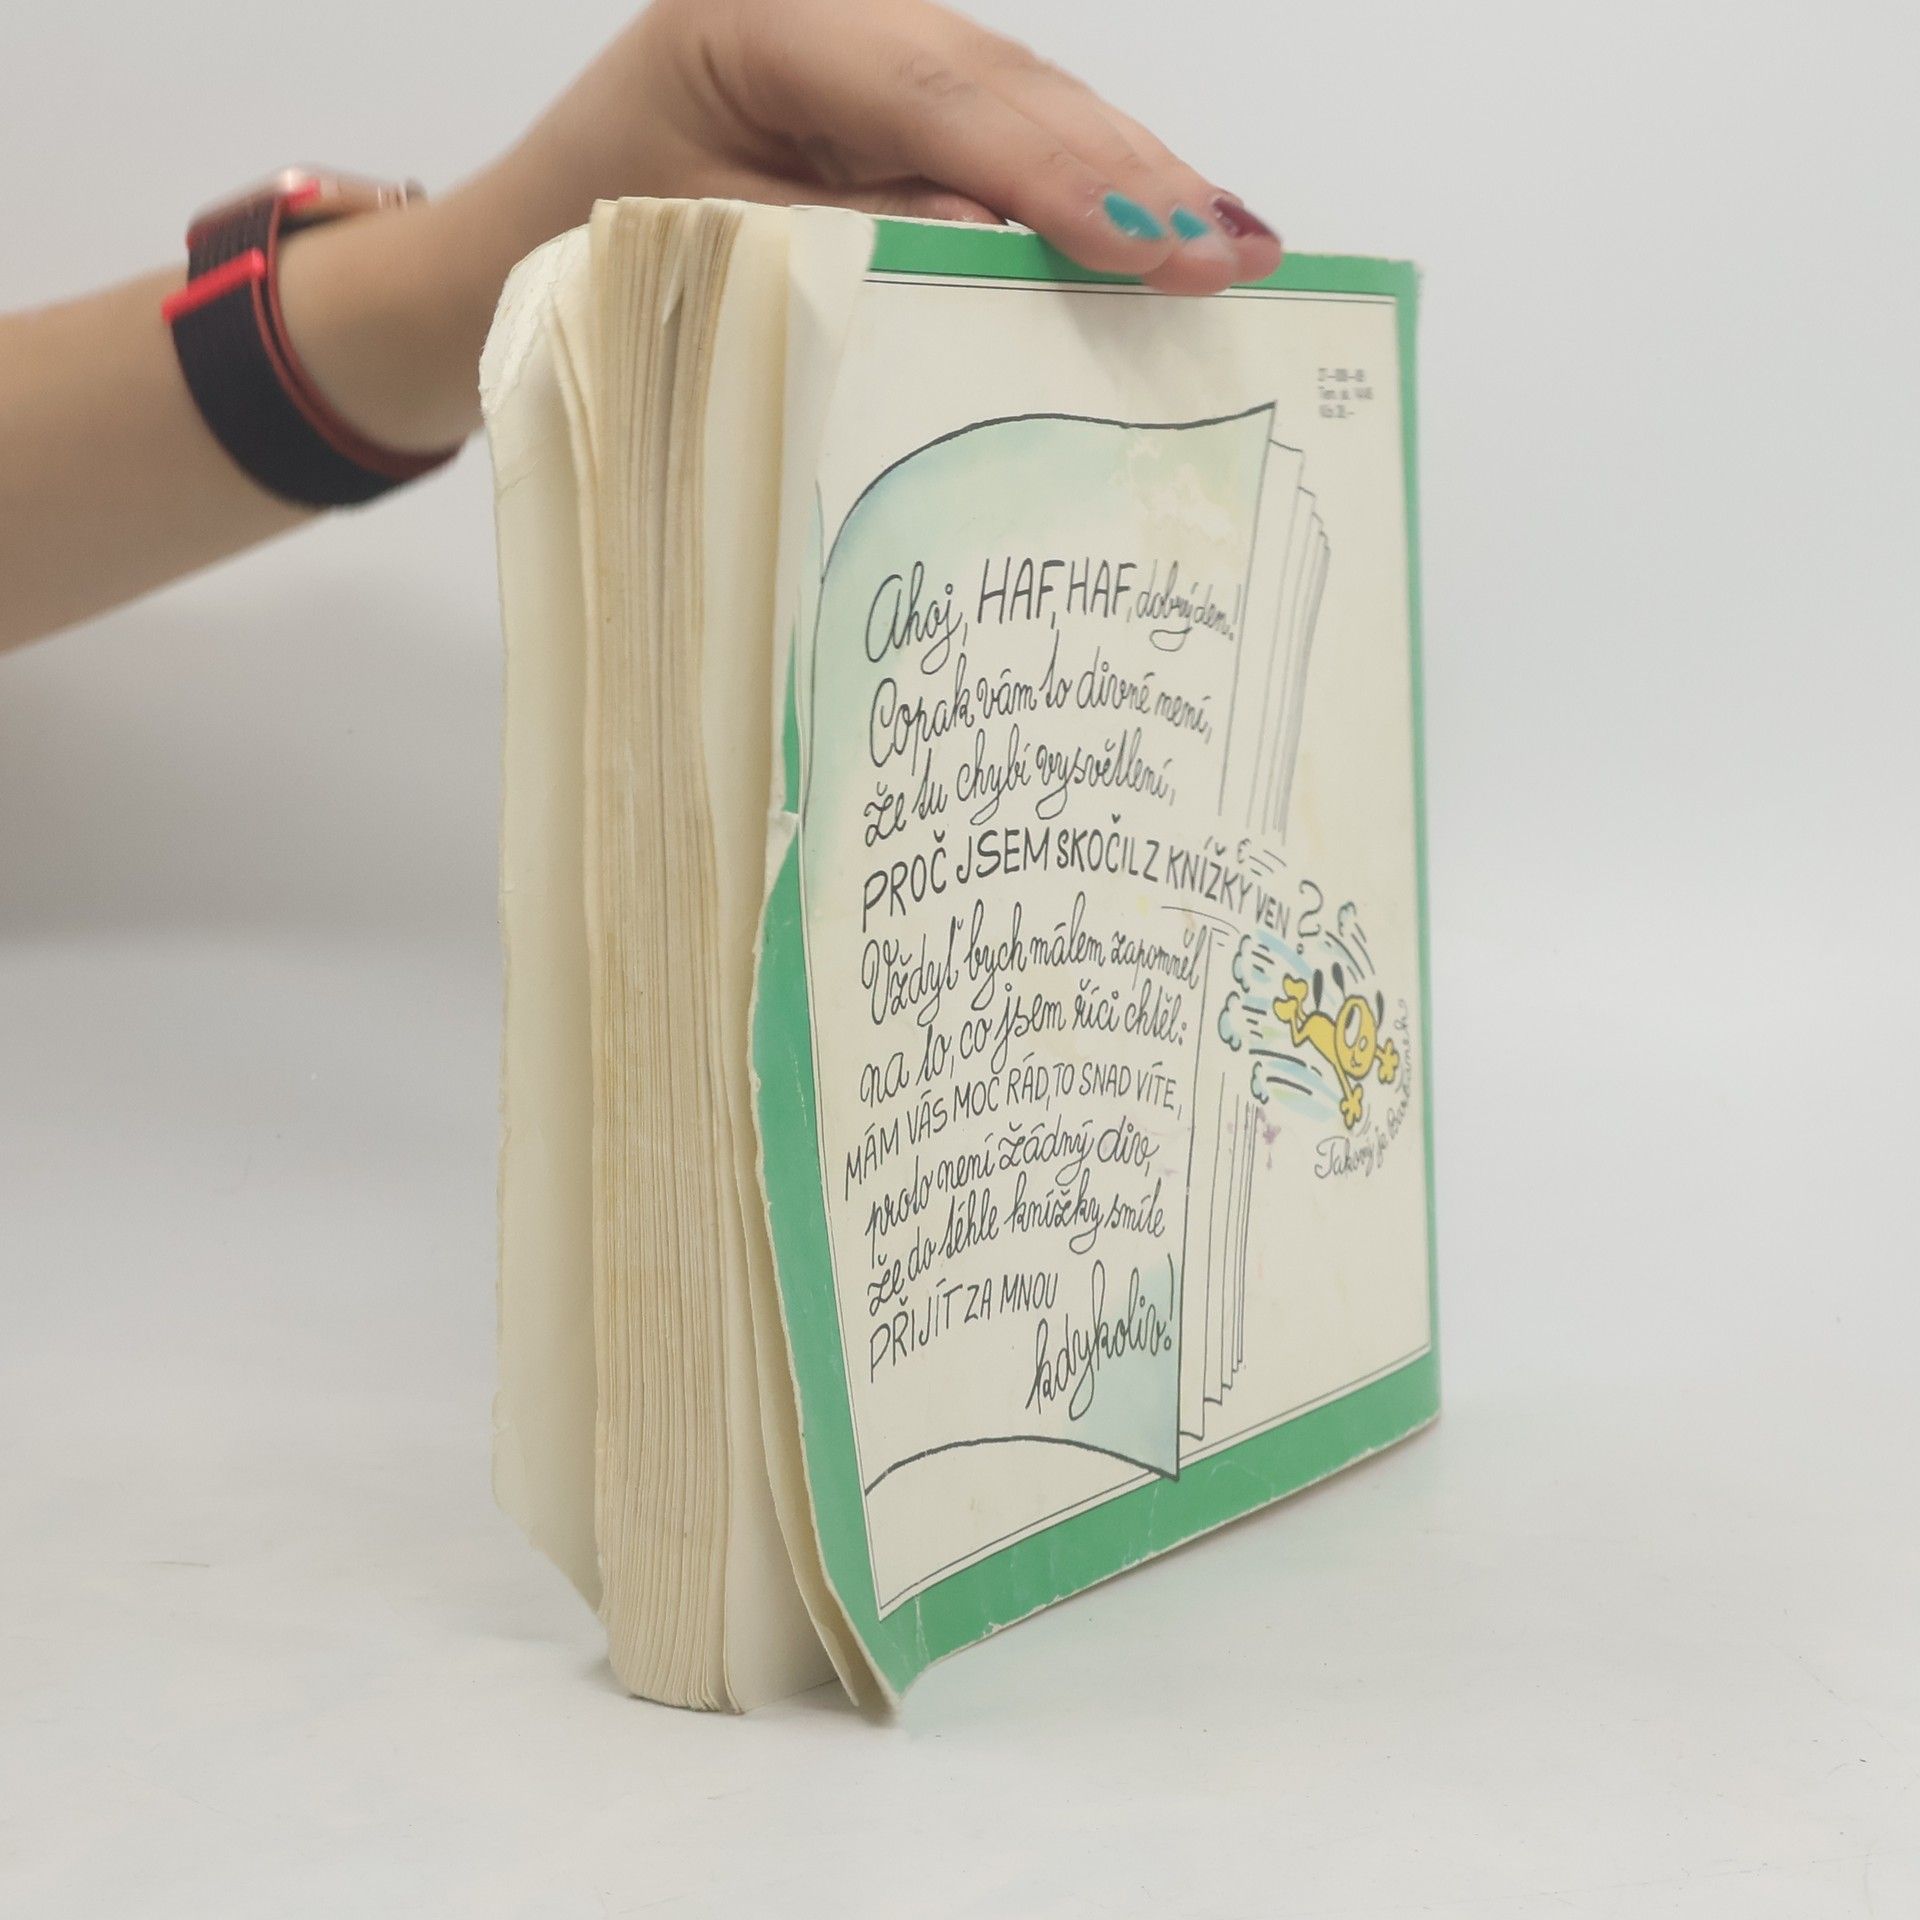 Ahoj, HAF, HAF, dobrý den!
Copak vám to divné není,
že tu chybí vysvětlení,
PROČ JSEM SKOČIL Z KNÍŽKY VEN?
Vždyť bych málem zapomněl
na to, co jsem říci chtěl:
MÁM VÁS MOC RÁD, TO SNAD VÍTE,
proto není žádný div,
že do téhle knížky smíte
PŘIJÍT ZA MNOU
kdykoliv!
Takový je Barbánek